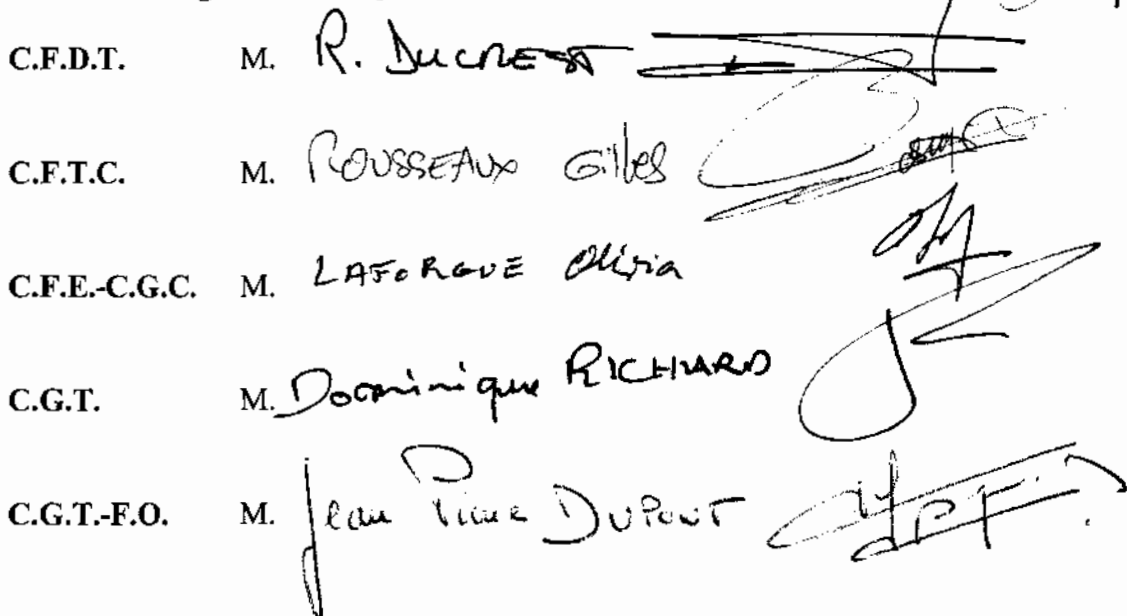 C.F.D.T. M. R. DUCREST
C.F.T.C. M. ROUSSEAUX Gilles
C.F.E.-C.G.C. M. LAFORGUE
C.G.T. M. Dominique RICHARD
C.G.T.-F.O. M. Jean Pierre DUPONT